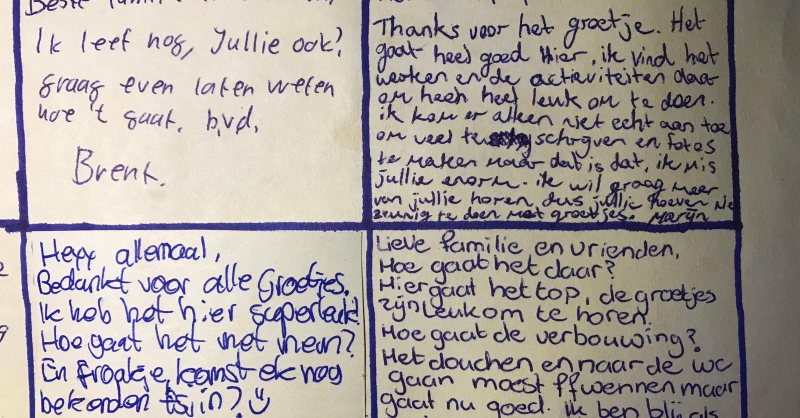 Beste famili
Ik leef nog, Jullie ook?
graag even laten weten
hoe 't gaat. bvd,
Brent.
Thanks voor het groetje. Het
gaat heel goed hier, ik vind het
werken en de activiteiten daar
om heen heel leuk om te doen.
ik kom er alleen niet echt aan toe
om veel te schrijven en fotos
te maken maar dat is dat, ik mis
jullie enorm. ik wil graag meer
van jullie horen, dus jullie hoeven nie
zuinig te doen met groetjes. Marijn
Heyy allemaal,
Bedankt voor alle Groetjes.
Ik heb het hier superleuk!
Hoe gaat het met
En komst ek nog
bekenden in?
Lieve familie en vrienden,
Hoe gaat het daar?
Hier gaat het top, de groetjes
zijn leuk om te horen.
Hoe gaat de verbouwing?
Het douchen en naar de wc
gaan moest ff wennen maar
gaat nu goed. ik ben blij